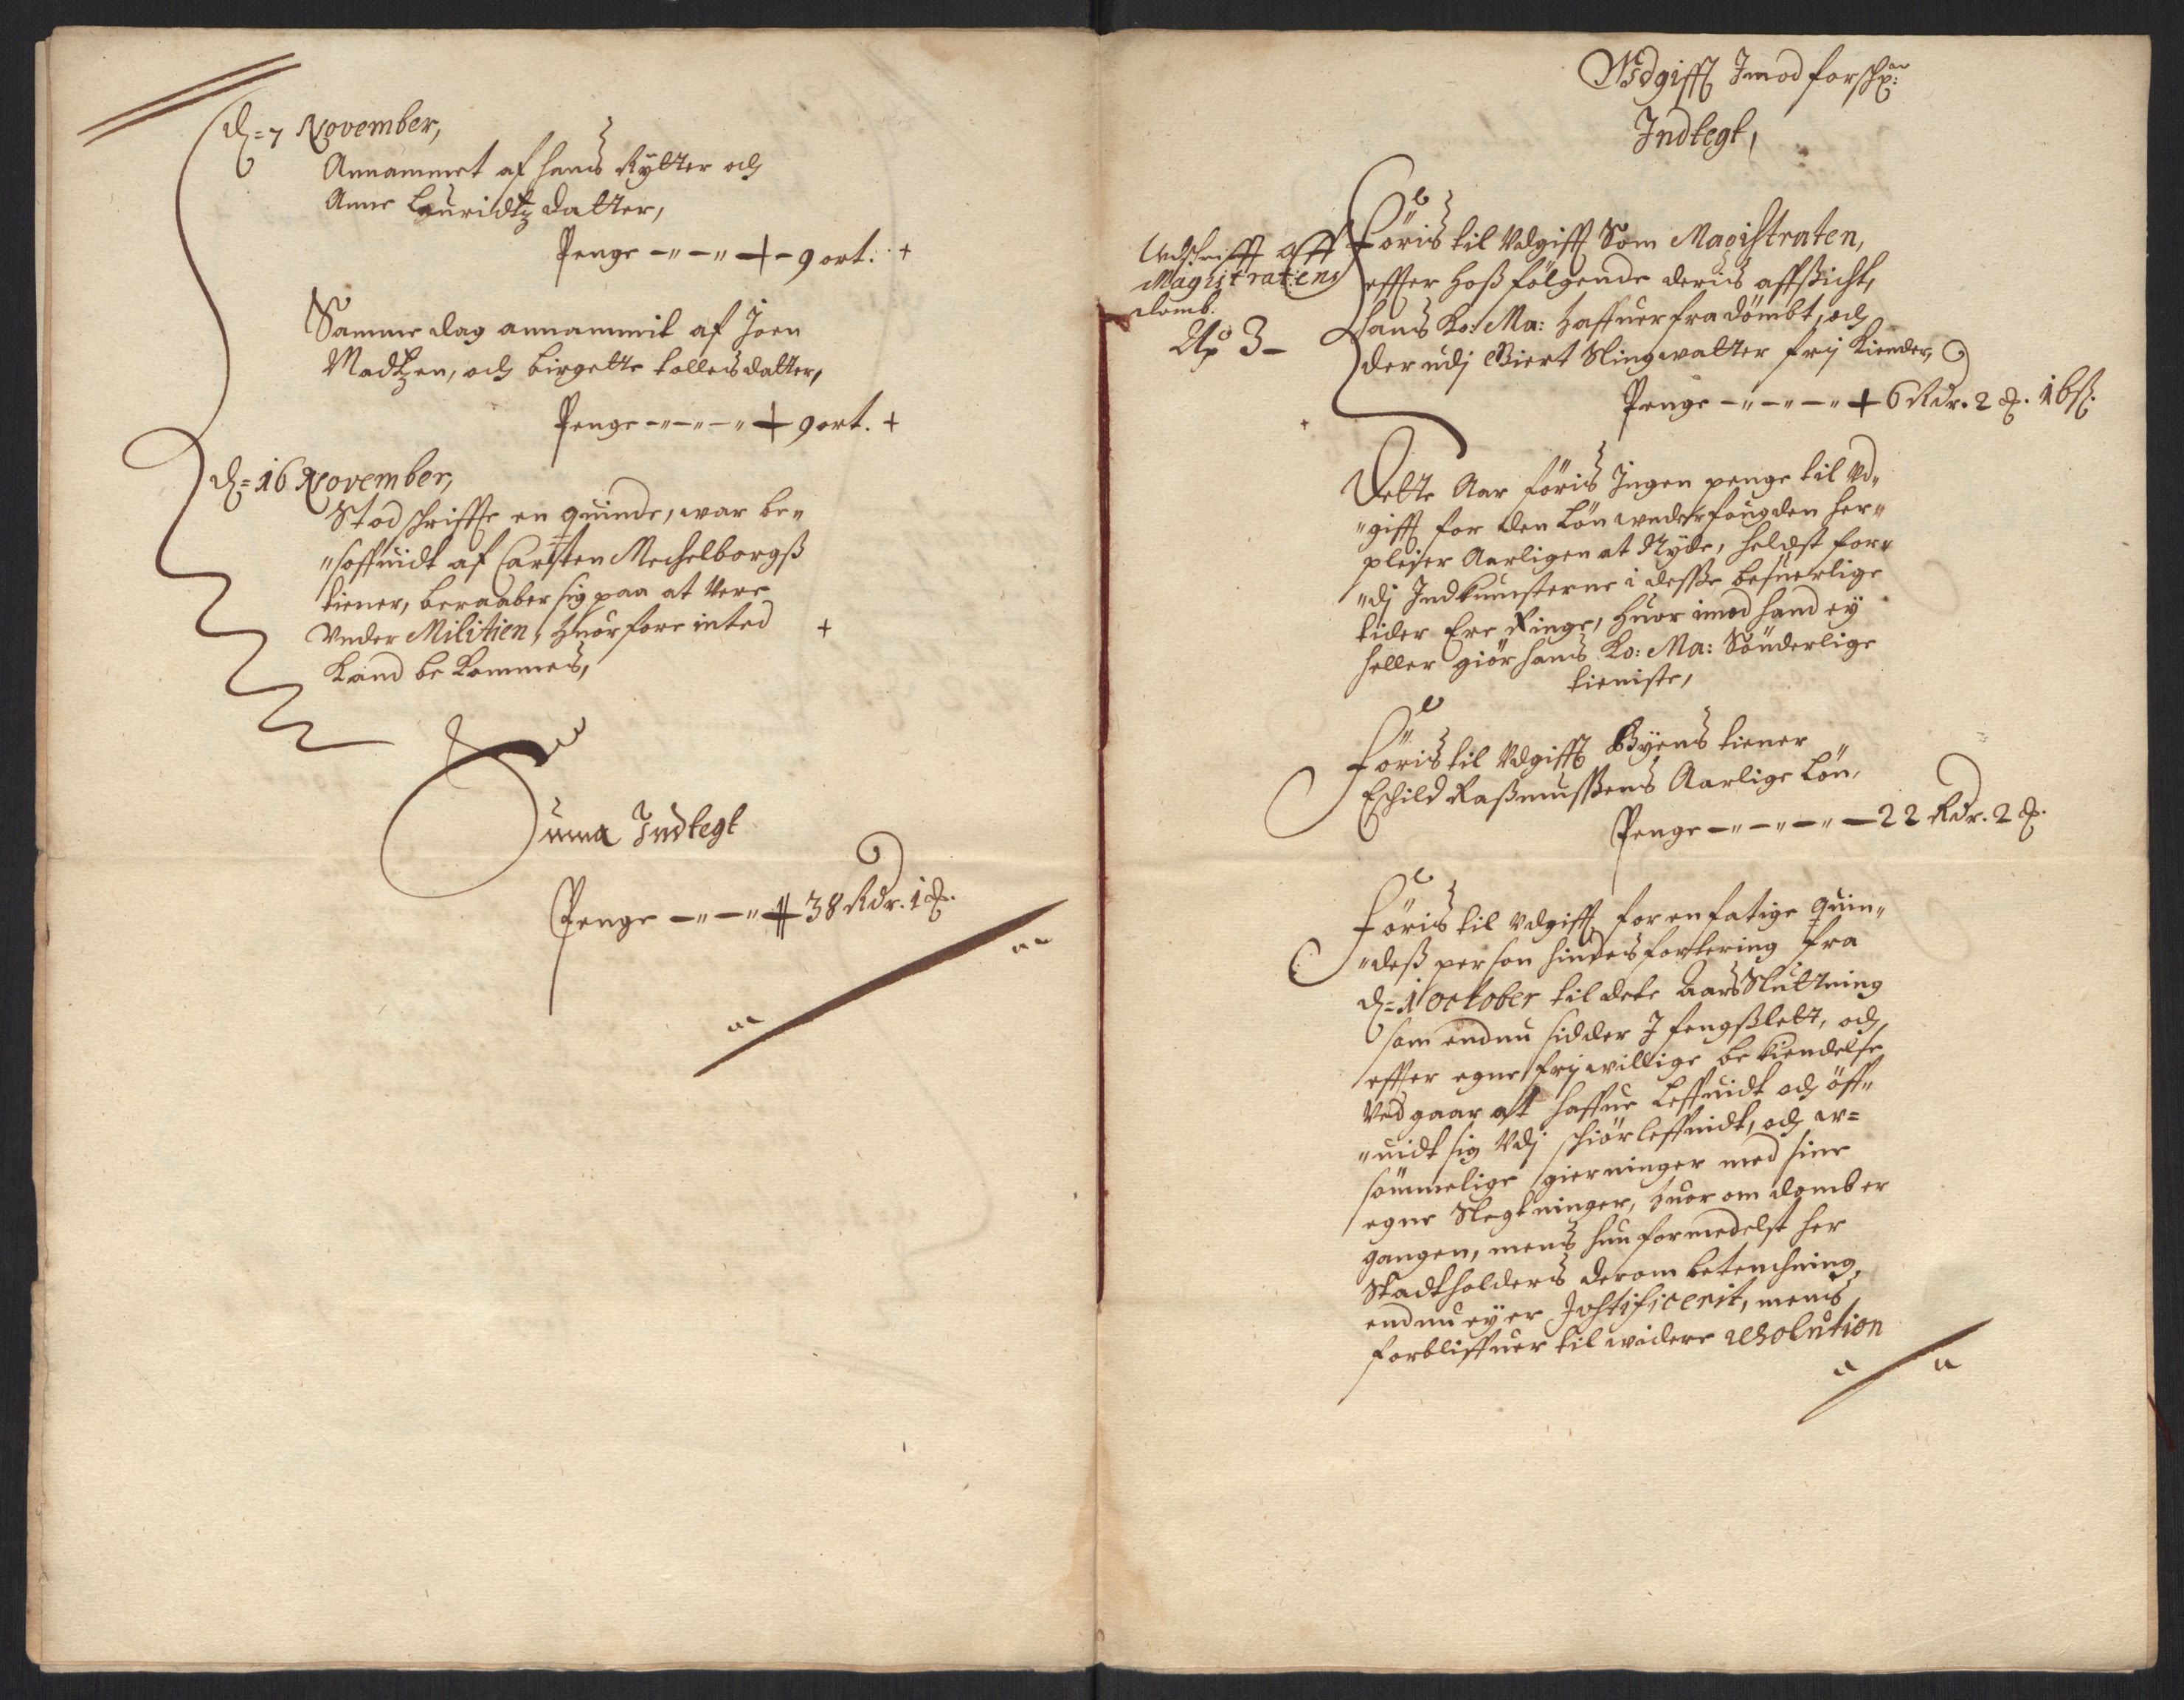 d= 7 November,
Annammet af hans Rytter och
Anne Lauridtz datter,
Penge -"-"- 9 ort. +
Samme dag annammit af Joen
Madtzen, och birgette tollersdatter,
Penge -"-"-" 9 ort. +
d= 16 November,
Stod schriffte en quinde, war be"
"soffuidt af Carsten Mechelborgß
tiener, beraaber sig paa at Were
Under Militien, huorfore inted +
Kand be kommes,
Suma Indtegt
Penge -"-"- 38 Rdr. 1 
Wdgifft Imod forschr:
Indtegt,
Udschrifft aff
Magistratens
domb.
No 3 -
Föris til Udgifft Som Magistraten,
effter hoß følgende deris affsicht,
hans Ko: Ma: haffuer fradömbt, och
der udj Biert Slingwatter frj Kiender,
Penge -"-"-" 6 Rdr. 2 . 16 ß.
Dette Aar föris Ingen penge til Ud"
"gifft for den Lön underfougden her"
pleier Aarligen at Nyde, heldst for"
"dj Indkumsterne i desse besuerlige
tider Ere Ringe, huor imod hand ey
heller giör hans Ko: Ma: Sönderlige
tieniste,
Föris til Udgifft Byens tiener
Eschild Raßmussens Aarlige Lön,
Penge -"-"-"- 22 Rdr. 2 .
Föris til Udgifft for en fatige quin"
"deß person hindes fortering fra
d= 1 october til dete Aars Sluttning
som endnu sidder I fengßlett, och
effter egne frjwillige bekiendelse
Ved gaar at haffue Leffuidt och öff"
"uidt sig Udj schiörleffnidt, och u=
sömmelige gierninger med sine
egne Slegtninger, huor om domb er
gangen, mens hun formedelst her
Stadtholders derom betenchning,
endnu ey er Justificerit, mens
forbliffuer til widere resolution